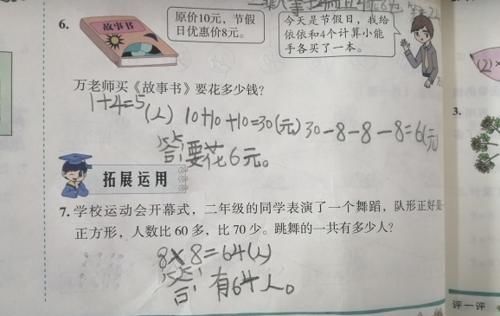 6.
故事书
原价10元，节假
日优惠价8元。
今天是节假日，我给
依依和4个计算小能
手各买了一本。
万老师买《故事书》要花多少钱？
1+4=5(人) 10+10+10=30(元) 30-8-8-8=6(元)
答：要花6元。
拓展运用
7. 学校运动会开幕式，二年级的同学表演了一个舞蹈，队形正好是
正方形，人数比 60 多，比 70 少。跳舞的一共有多少人？
8×8=64(人)
答：有64人。
3.
评一评